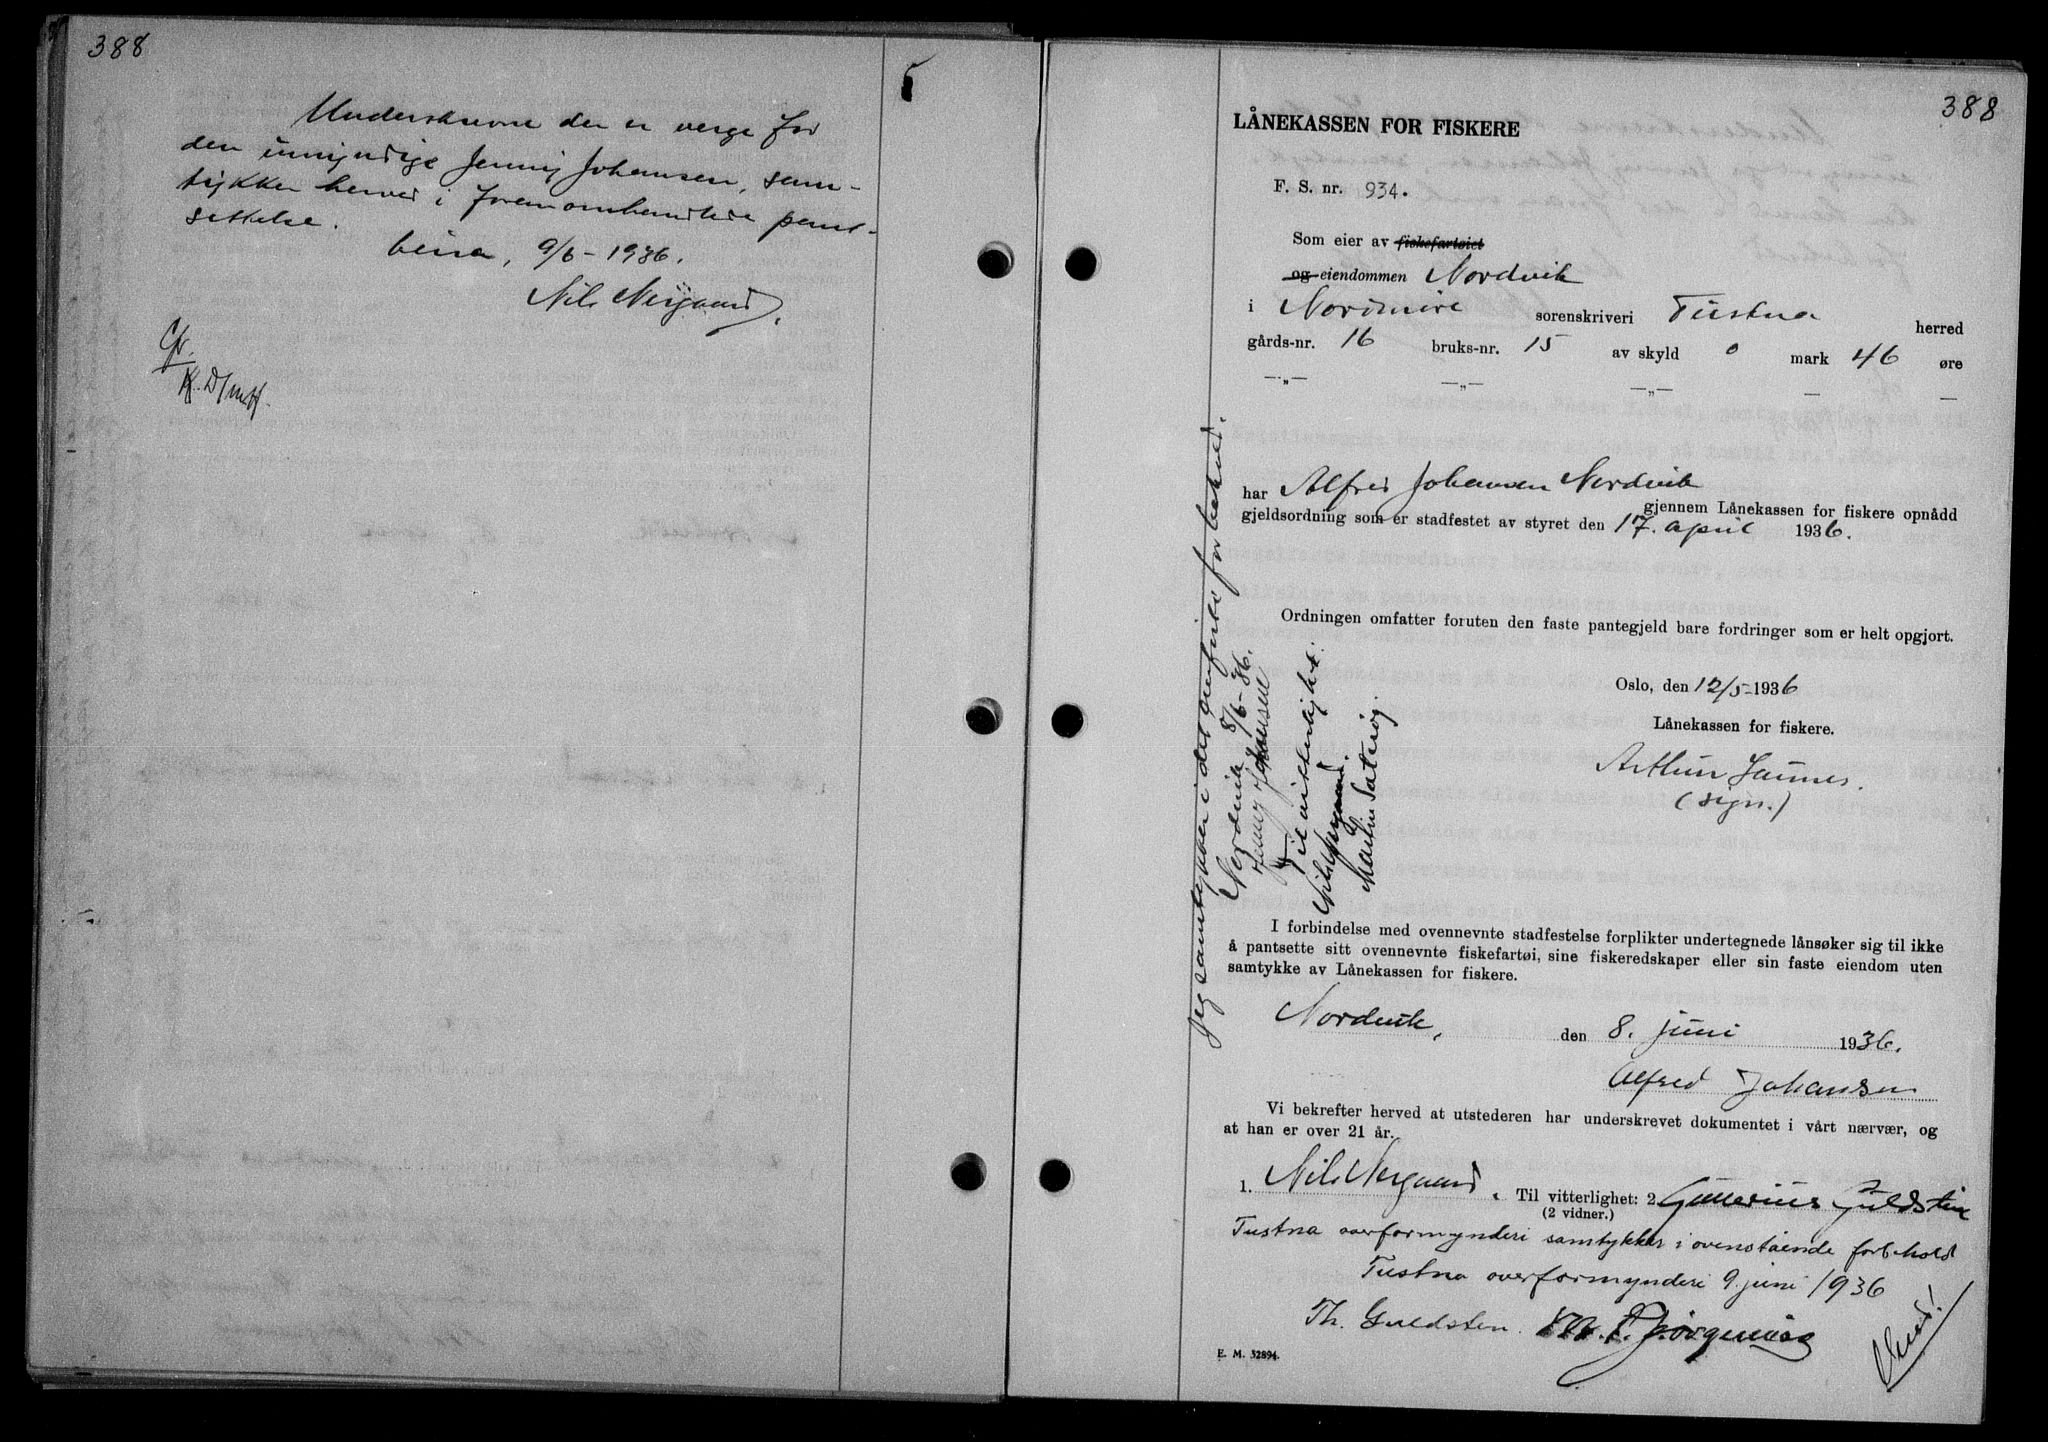 388
Underskrevne der er verge for
den umyndige Jenny Johansen, sam-
tykker herved i foranomhandlede pant-
settelse.
Leira, 9/6-1936.
Nils Nergaard
388
LÅNEKASSEN FOR FISKERE
F. S. nr. 934.
Som eier av fiskefartøiet
og eiendommen Nordvik
i Nordmøre sorenskriveri Tustna herred
gårds-nr. 16 bruks-nr. 15 av skyld 0 mark 46 øre
—„— —„— —„— — —
har Alfred Johansen Nordvik
gjennem Lånekassen for fiskere opnådd
gjeldsordning som er stadfestet av styret den 17. april 1936.
Ordningen omfatter foruten den faste pantegjeld bare fordringer som er helt opgjort.
Oslo, den 12/5-1936
Lånekassen for fiskere.
Arthur
(sign.)
Jeg samtykker i det forbehold.
Nordvik 8/6-36.
Jenny Johansen
Til vitterlighet:
Nils Nergaard.
Martin
I forbindelse med ovennevnte stadfestelse forplikter undertegnede lånsøker sig til ikke
å pantsette sitt ovennevnte fiskefartøi, sine fiskeredskaper eller sin faste eiendom uten
samtykke av Lånekassen for fiskere.
Nordvik, den 8. juni 1936.
Alfred Johansen
Vi bekrefter herved at utstederen har underskrevet dokumentet i vårt nærvær, og
at han er over 21 år.
1. Nils Nergaard. Til vitterlighet: 2. Guldsten
(2 vidner.)
Tustna overformynderi samtykker i ovenstående forbehold
Tustna overformynderi 9. juni 1936
Th. Guldsten.
E. M. 32894.